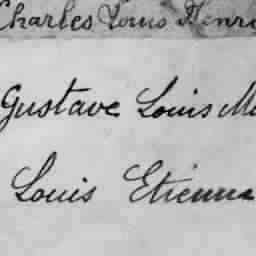 Charles Louis Henri
Gustave Louis M
Louis Etienne